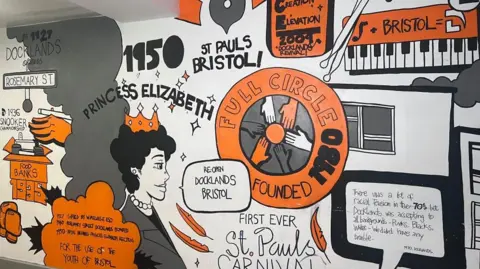 1927
DOCKLANDS
ROSEMARY ST
1936
SNOOKER
CHAMPIONSHIP
FOOD
BANKS
1150
ST PAULS
BRISTOL!
PRINCESS ELIZABETH
CREATION
ELEVATION
2009
DOCKLANDS
REVIVAL!
♫ + BRISTOL =
FULL CIRCLE
1980
FOUNDED
RE-OPEN
DOCKLANDS
BRISTOL
FIRST EVER
St. Pauls
CARNIVAL
FOR THE USE OF THE
YOUTH OF BRISTOL
There was a bit of
Racial Tension in the 70's but
Docklands was accepting to
all backgrounds - Punks, Blacks,
White - we didn't have any
trouble.